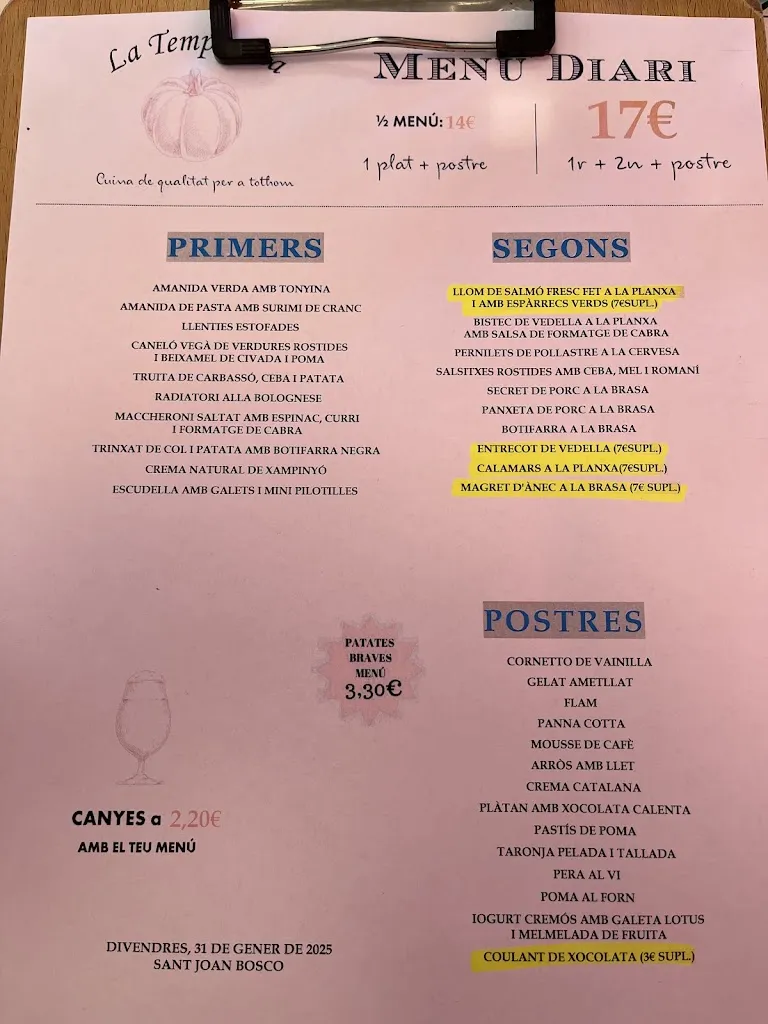 La Temp
MENÚ DIARI
½ MENÚ: 14€
1 plat + postre
17€
1r + 2n + postre
Cuina de qualitat per a tothom
PRIMERS
AMANIDA VERDA AMB TONYINA
AMANIDA DE PASTA AMB SURIMI DE CRANC
LLENTIES ESTOFADES
CANELÓ VEGÀ DE VERDURES ROSTIDES
I BEIXAMEL DE CIVADA I POMA
TRUITA DE CARBASSÓ, CEBA I PATATA
RADIATORI ALLA BOLOGNESE
MACCHERONI SALTAT AMB ESPINAC, CURRI
I FORMATGE DE CABRA
TRINXAT DE COL I PATATA AMB BOTIFARRA NEGRA
CREMA NATURAL DE XAMPINYÓ
ESCUDELLA AMB GALETS I MINI PILOTILLES
SEGONS
LLOM DE SALMÓ FRESC FET A LA PLANXA
I AMB ESPÀRRECS VERDS (7€SUPL.)
BISTEC DE VEDELLA A LA PLANXA
AMB SALSA DE FORMATGE DE CABRA
PERNILETS DE POLLASTRE A LA CERVESA
SALSITXES ROSTIDES AMB CEBA, MEL I ROMANÍ
SECRET DE PORC A LA BRASA
PANXETA DE PORC A LA BRASA
BOTIFARRA A LA BRASA
ENTRECOT DE VEDELLA (7€SUPL.)
CALAMARS A LA PLANXA(7€SUPL.)
MAGRET D'ÀNEC A LA BRASA (7€ SUPL.)
PATATES
BRAVES
MENÚ
3,30€
CANYES a 2,20€
AMB EL TEU MENÚ
POSTRES
CORNETTO DE VAINILLA
GELAT AMETLLAT
FLAM
PANNA COTTA
MOUSSE DE CAFÈ
ARRÒS AMB LLET
CREMA CATALANA
PLÀTAN AMB XOCOLATA CALENTA
PASTÍS DE POMA
TARONJA PELADA I TALLADA
PERA AL VI
POMA AL FORN
IOGURT CREMÓS AMB GALETA LOTUS
I MELMELADA DE FRUITA
COULANT DE XOCOLATA (3€ SUPL.)
DIVENDRES, 31 DE GENER DE 2025
SANT JOAN BOSCO